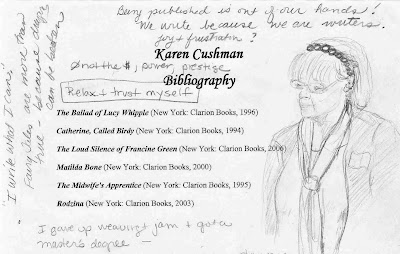 Being published is out of our hands!
We write because we are writers.
joy + frustration?
Karen Cushman
Bibliography
not the $, power, prestige
Relax + trust myself
"I write what I care"
Fairy Tales are more than
true - because dragons
can be beaten
The Ballad of Lucy Whipple (New York: Clarion Books, 1996)
Catherine, Called Birdy (New York: Clarion Books, 1994)
The Loud Silence of Francine Green (New York: Clarion Books, 2006)
Matilda Bone (New York: Clarion Books, 2000)
The Midwife's Apprentice (New York: Clarion Books, 1995)
Rodzina (New York: Clarion Books, 2003)
I gave up weaving + jam + got a
master's degree —